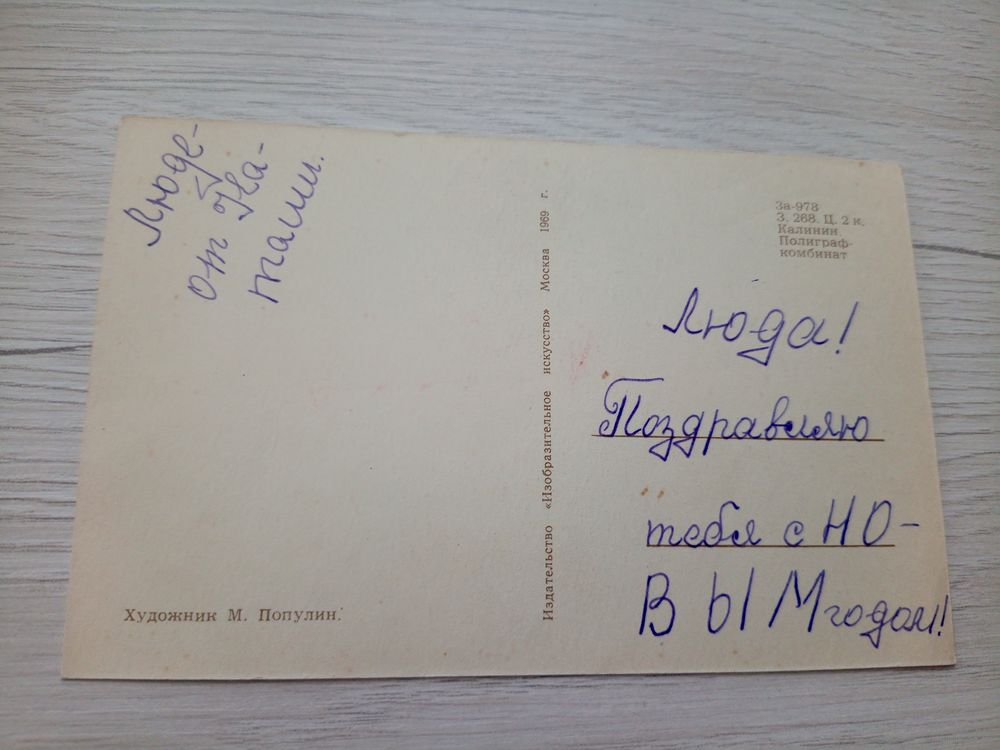 Люде-
от На-
таши.
Художник М. Популин.
Издательство «Изобразительное искусство» Москва 1969 г.
За-978
З. 268. Ц. 2 к.
Калинин.
Полиграф-
комбинат
Люда!
Поздравляю
тебя с НО-
ВЫМ годом!